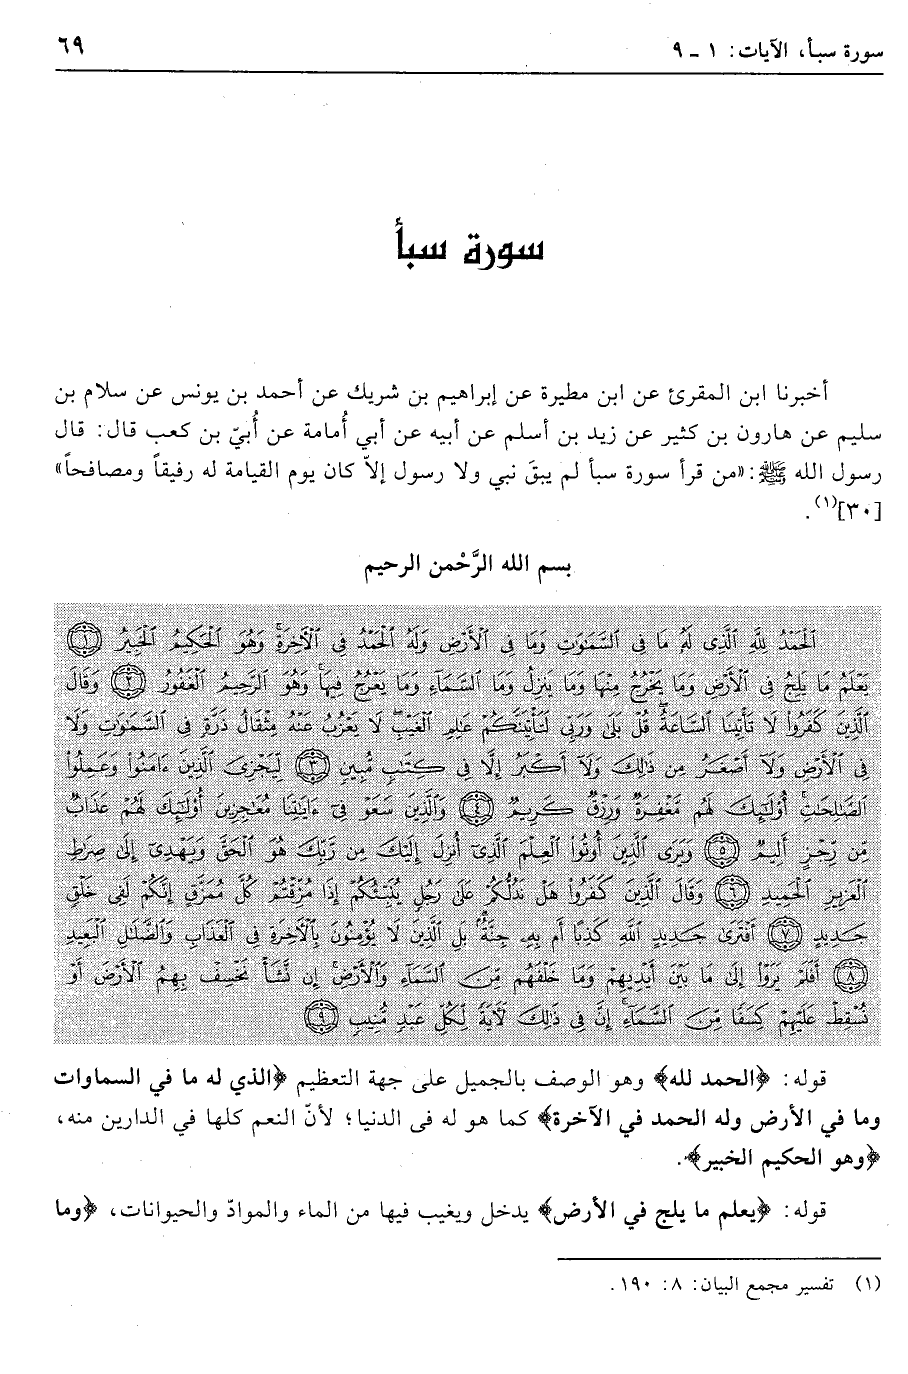 سورة سبأ، الآيات: ١ ـ ٩
٦٩
سورة سبأ
أخبرنا ابن المقرئ عن ابن مطيرة عن إبراهيم بن شريك عن أحمد بن يونس عن سلام بن
سليم عن هارون بن كثير عن زيد بن أسلم عن أبيه عن أبي أُمامة عن أُبيّ بن كعب قال: قال
رسول الله ﷺ: «من قرأ سورة سبأ لم يبقَ نبي ولا رسول إلاّ كان يوم القيامة له رفيقاً ومصافحاً»
[٣٠](١).
بسم الله الرَّحْمن الرحيم
ٱلْحَمْدُ لِلَّهِ ٱلَّذِى لَهُۥ مَا فِى ٱلسَّمَٰوَٰتِ وَمَا فِى ٱلْأَرْضِ وَلَهُ ٱلْحَمْدُ فِى ٱلْأَخِرَةِ ۚ وَهُوَ ٱلْحَكِيمُ ٱلْخَبِيرُ ﴿١﴾
يَعْلَمُ مَا يَلِجُ فِى ٱلْأَرْضِ وَمَا يَخْرُجُ مِنْهَا وَمَا يَنزِلُ مِنَ ٱلسَّمَآءِ وَمَا يَعْرُجُ فِيهَا ۚ وَهُوَ ٱلرَّحِيمُ ٱلْغَفُورُ ﴿٢﴾ وَقَالَ
ٱلَّذِينَ كَفَرُوا۟ لَا تَأْتِينَا ٱلسَّاعَةُ ۖ قُلْ بَلَىٰ وَرَبِّى لَتَأْتِيَنَّكُمْ عَٰلِمِ ٱلْغَيْبِ ۖ لَا يَعْزُبُ عَنْهُ مِثْقَالُ ذَرَّةٍ فِى ٱلسَّمَٰوَٰتِ وَلَا
فِى ٱلْأَرْضِ وَلَآ أَصْغَرُ مِن ذَٰلِكَ وَلَآ أَكْبَرُ إِلَّا فِى كِتَٰبٍ مُّبِينٍ ﴿٣﴾ لِّيَجْزِىَ ٱلَّذِينَ ءَامَنُوا۟ وَعَمِلُوا۟
ٱلصَّٰلِحَٰتِ ۚ أُو۟لَٰٓئِكَ لَهُم مَّغْفِرَةٌ وَرِزْقٌ كَرِيمٌ ﴿٤﴾ وَٱلَّذِينَ سَعَوْ فِىٓ ءَايَٰتِنَا مُعَٰجِزِينَ أُو۟لَٰٓئِكَ لَهُمْ عَذَابٌ
مِّن رِّجْزٍ أَلِيمٌ ﴿٥﴾ وَيَرَى ٱلَّذِينَ أُوتُوا۟ ٱلْعِلْمَ ٱلَّذِىٓ أُنزِلَ إِلَيْكَ مِن رَّبِّكَ هُوَ ٱلْحَقَّ وَيَهْدِىٓ إِلَىٰ صِرَٰطِ
ٱلْعَزِيزِ ٱلْحَمِيدِ ﴿٦﴾ وَقَالَ ٱلَّذِينَ كَفَرُوا۟ هَلْ نَدُلُّكُمْ عَلَىٰ رَجُلٍ يُنَبِّئُكُمْ إِذَا مُزِّقْتُمْ كُلَّ مُمَزَّقٍ إِنَّكُمْ لَفِى خَلْقٍ
جَدِيدٍ ﴿٧﴾ أَفْتَرَىٰ جَدِيدٍ ٱللَّهِ كَذِبًا أَم بِهِۦ جِنَّةٌ ۗ بَلِ ٱلَّذِينَ لَا يُؤْمِنُونَ بِٱلْأَخِرَةِ فِى ٱلْعَذَابِ وَٱلضَّلَٰلِ ٱلْبَعِيدِ
﴿٨﴾ أَفَلَمْ يَرَوْا۟ إِلَىٰ مَا بَيْنَ أَيْدِيهِمْ وَمَا خَلْفَهُم مِّنَ ٱلسَّمَآءِ وَٱلْأَرْضِ ۚ إِن نَّشَأْ نَخْسِفْ بِهِمُ ٱلْأَرْضَ أَوْ
نُسْقِطْ عَلَيْهِمْ كِسَفًا مِّنَ ٱلسَّمَآءِ ۚ إِنَّ فِى ذَٰلِكَ لَأَيَةً لِّكُلِّ عَبْدٍ مُّنِيبٍ ﴿٩﴾
قوله: ﴿الحمد لله﴾ وهو الوصف بالجميل على جهة التعظيم ﴿الذي له ما في السماوات
وما في الأرض وله الحمد في الآخرة﴾ كما هو له فى الدنيا؛ لأنّ النعم كلها في الدارين منه،
﴿وهو الحكيم الخبير﴾.
قوله: ﴿يعلم ما يلج في الأرض﴾ يدخل ويغيب فيها من الماء والموادّ والحيوانات، ﴿وما
(١) تفسير مجمع البيان: ٨: ١٩٠.